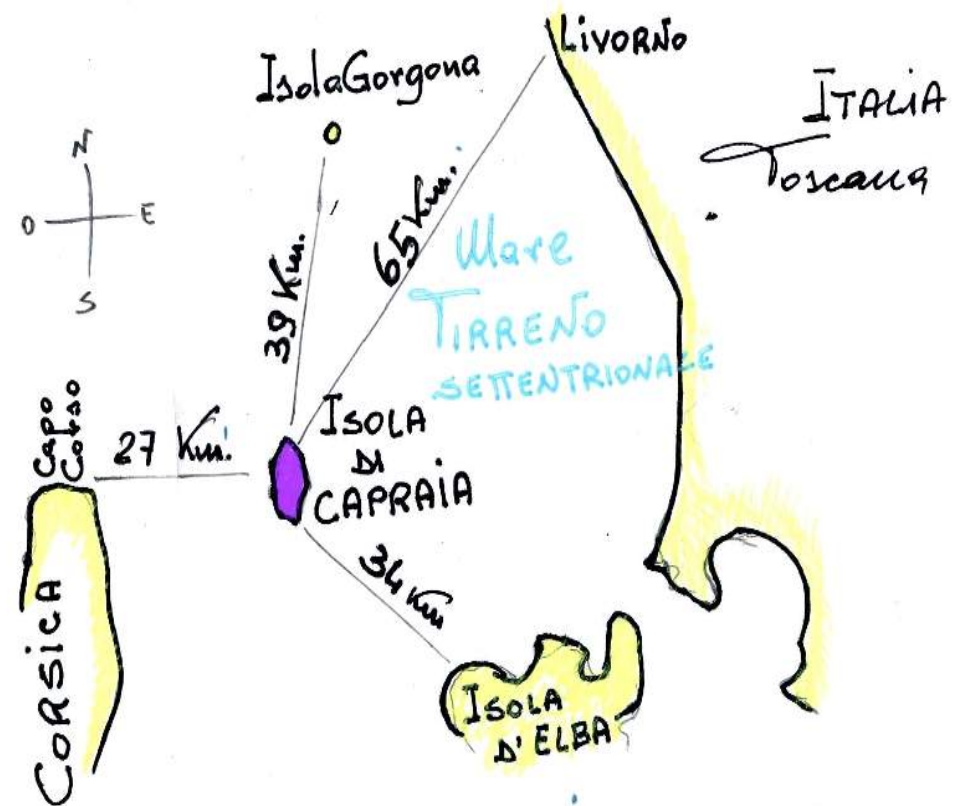 LIVORNO
Isola Gorgona
ITALIA
Toscana
N
O
E
S
39 Km.
65 Km.
Mare
TIRRENO
SETTENTRIONALE
Capo
Corso
27 Km.
ISOLA
DI
CAPRAIA
34 Km
CORSICA
ISOLA
D'ELBA